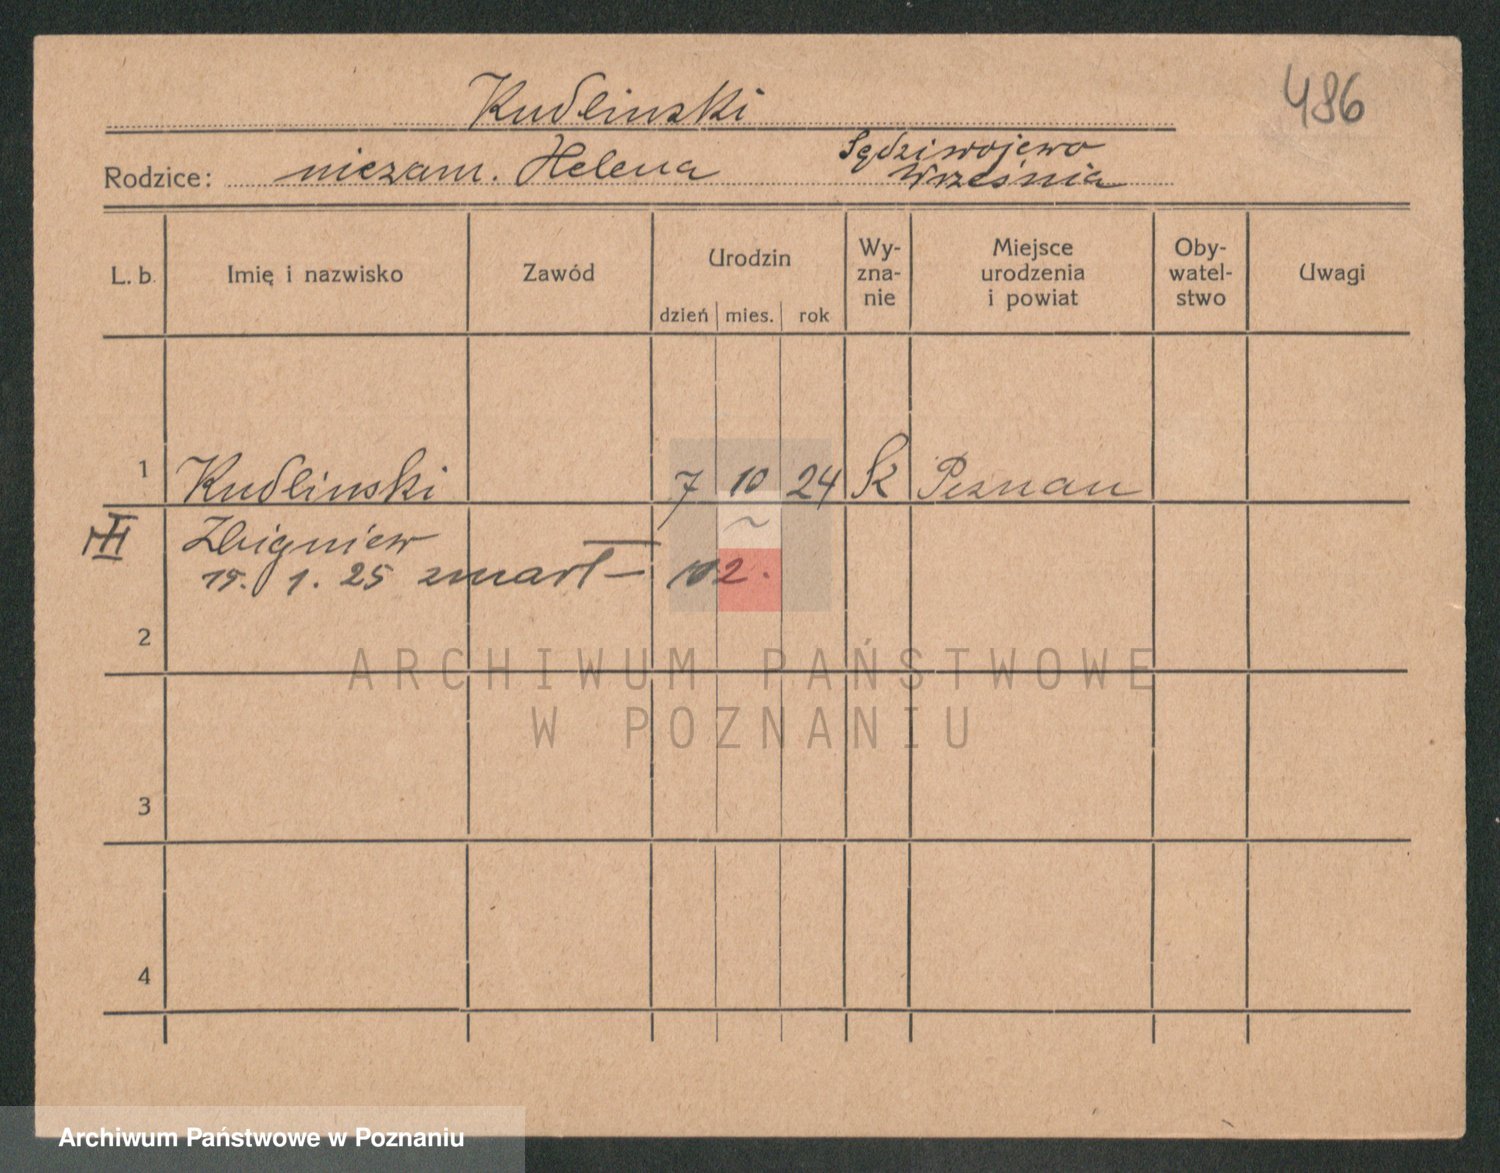 486
Kudlinski
Rodzice: niezam. Helena Sędziwojewo
Września
L. b. Imię i nazwisko Zawód Urodzin Wy-
zna-
nie Miejsce
urodzenia
i powiat Oby-
watel-
stwo Uwagi
dzień mies. rok
1 Kudlinski 7 10 24 k Poznan
Zbigniew
15. 1. 25 zmarł – 102.
2
3
4
ARCHIWUM PAŃSTWOWE
W POZNANIU
Archiwum Państwowe w Poznaniu